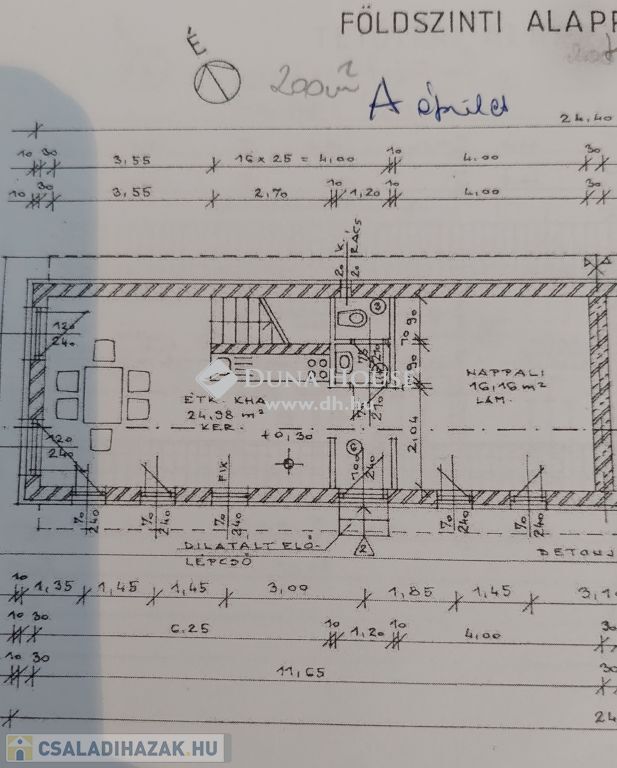 FÖLDSZINTI ALAPR
É
200m²
A épület
24.40
10 30 3,55 16 x 25 = 4,00 10 4.00 30
10 30 3,55 2,70 10 1,20 10 4,00 30
20 K.
20 RÁCS
120
240
NAPPALI
16,16 m²
LAM.
ÉTK. KHA
24,98 m²
KER.
±0,30
DUNA HOUSE
www.dh.hu
70 90
1,90
2,04
2,10
100
240
120
240
FIX
70
240
70
240
70
240
70
240
70
240
DILATÁLT ELŐ-
LÉPCSŐ
10 1,35 1,45 1,45 3,00 1,85 1,45
10 30 6.25 10 1,20 10 4,00 30
10 30 11,65 30
24
CSALADIHAZAK.HU